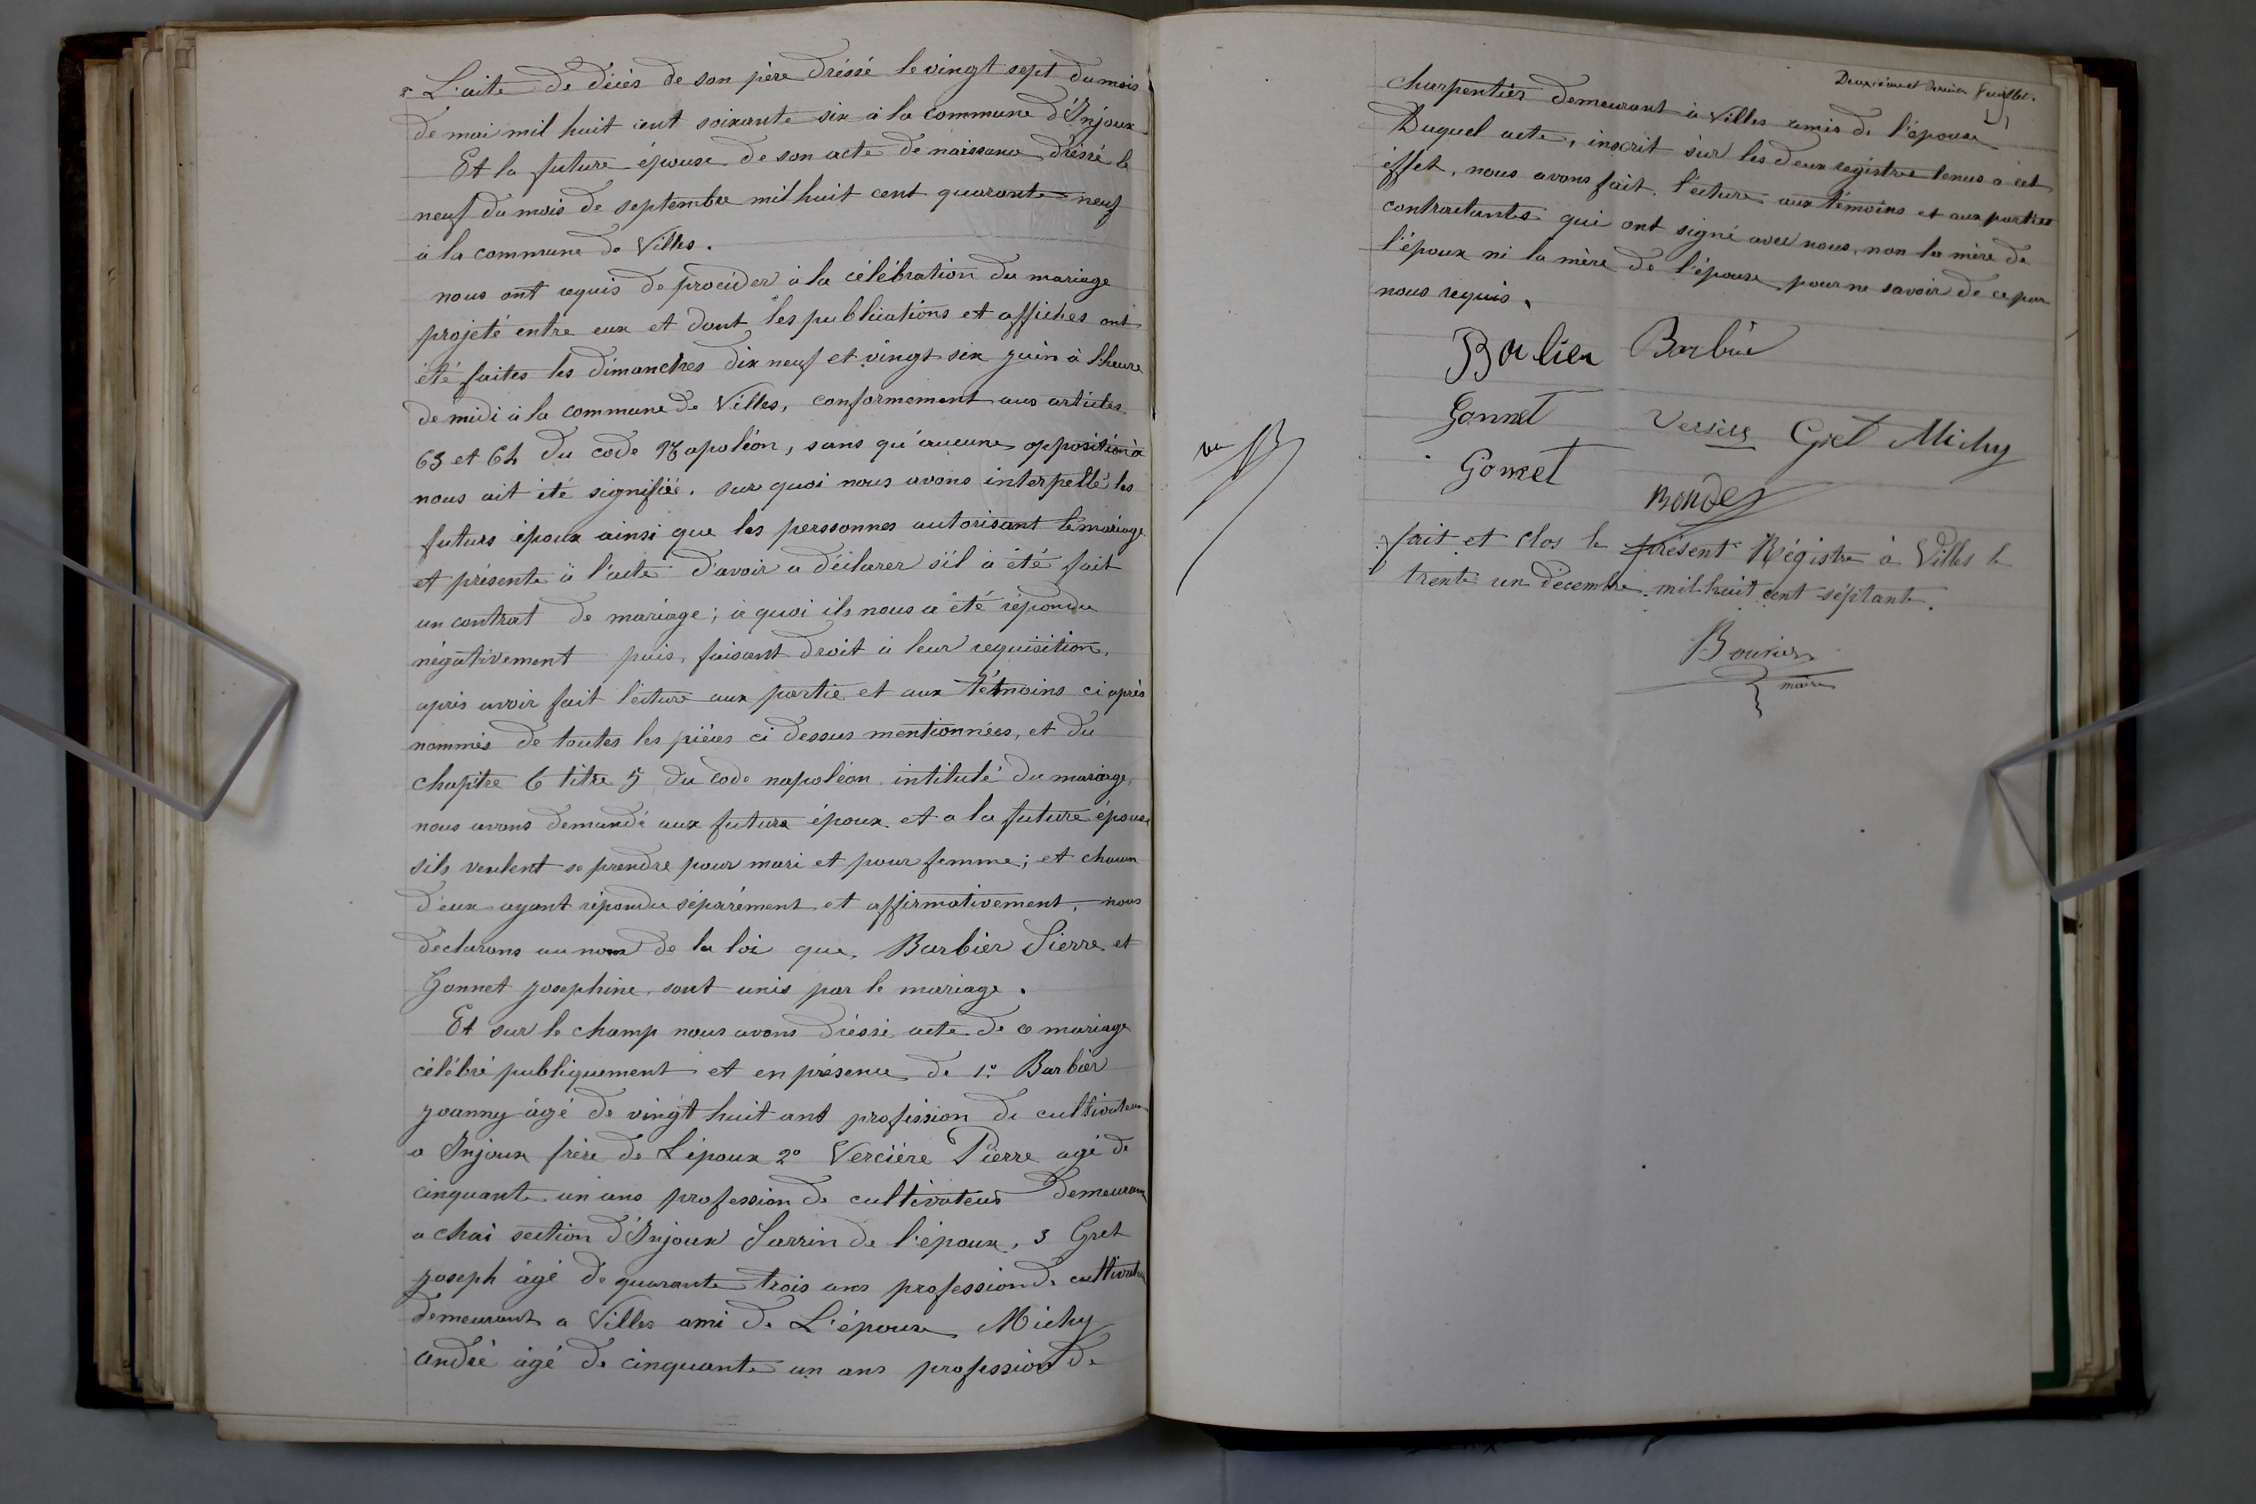 L'acte de décès de son père dréssé le vingt sept du mois
de mai mil huit cent soixante six à la commune d'Injoux
Et la future épouse de son acte de naissance dréssé le
neuf du mois de septembre mil huit cent quarante neuf
à la commune de Villes.
nous ont requis de procéder à la célébration du mariage
projeté entre eux et dont les publications et affiches ont
été faites les dimanches dix neuf et vingt six juin à l'heure
de midi à la commune de Villes, conformement aux articles
63 et 64 du code Napoléon, sans qu'aucune opposition à
nous ait été signifiée. sur quoi nous avons interpellé les
futurs époux ainsi que les perssonnes autorisant le mariage
et présente à l'acte d'avoir a déclarer s'il à été fait
un contrat de mariage; à quoi ils nous a été répondu
négativement puis, faisant droit à leur requisition,
après avoir fait lecture aux partie et aux témoins ci après
nommés de toutes les pièces ci dessus mentionnées, et du
chapitre 6 titre 5 du code napoléon intitulé du mariage,
nous avons demandé aux future époux et a la future épouse
s'ils veulent se prendre pour mari et pour femme; et chacun
d'eux ayant répondu séparément et affirmativement, nous
declarons au nom de la loi que, Barbier Pierre et
Gonnet Josephine sont unis par le mariage.
Et sur le champ nous avons dréssé acte de ce mariage
célébré publiquement et en présence de 1º Barbier
Joanny âgé de vingt huit ans profission de cultivateur
a Injoux frère de L'époux 2º Vercière Pierre agé de
cinquante un ans profession de cultivateur demeurant
a chai section d'Injoux Parrin de l'époux, 3 Gret
Joseph âgé de quarante trois ans profession de cultivateur
demeurant a Villes ami de L'épouse Michy
andré âgé de cinquante un ans profession de
Deuxième et dernier feuillet.
charpentier demeurant à Villes amis de l'épouse
Duquel acte, inscrit sur les deux registres tenus a cet
éffet, nous avons fait lecture aux témoins et aux parties
contractantes qui ont signé avec nous, non la mère de
l'époux ni la mère de l'épouse pour ne savoir de ce par
nous requis.
Barbier
Gonnet Versière Gret Michy
Gonnet
vu
fait et clos le présent Régistre à Villes le
trente un décembre mil huit cent séptante.
Bouvier
maire